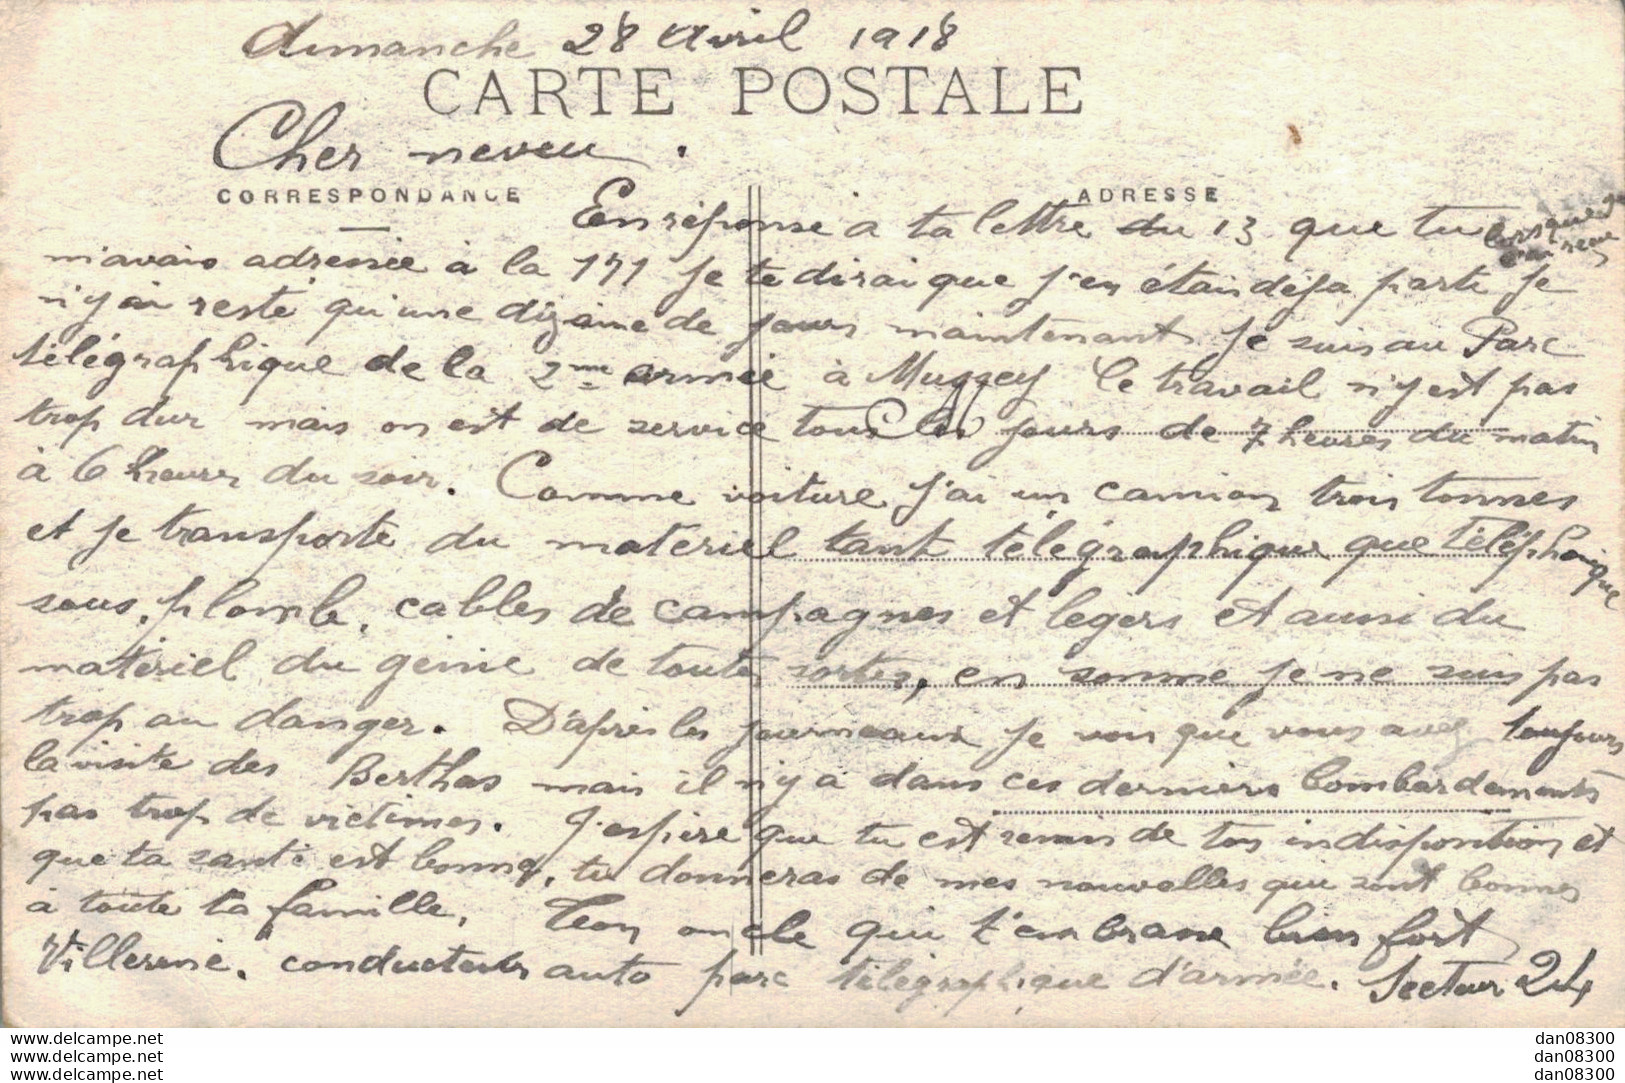 dimanche 28 Avril 1918
CARTE POSTALE
Cher neveu.
CORRESPONDANCE
ADRESSE
En réponse a ta lettre du 13 que tu
lorsque je
l'ai recue
m'avais adressée à la 171 je te dirai que j'en étais déja parti je
n'y ai resté qu'une dizaine de jours maintenant je suis au Parc
télégraphique de la 2me armée à Mussey le travail n'y est pas
trop dur mais on est de service tous les jours de 7 heures du matin
à 6 heures du soir. Comme voiture j'ai un camion trois tonnes
et je transporte du matériel tant télégraphique que téléphonique
sous, plomb, cables de campagnes et légers et aussi du
matériel du génie de toutes sortes, en somme je ne suis pas
trop au danger. D'après les journeaux je vois que vous avez toujours
la visite des Berthas mais il n'y a dans ces derniers bombardements
pas trop de victimes. J'espère que tu est remis de ton indisposition et
que ta santé est bonne, tu donneras de mes nouvelles qui sont bonnes
à toute ta famille, Ton oncle qui t'embrasse bien fort
conducteur auto parc télégraphique d'armée. Secteur 24
dan08300
dan08300
dan08300
www.delcampe.net
www.delcampe.net
www.delcampe.net